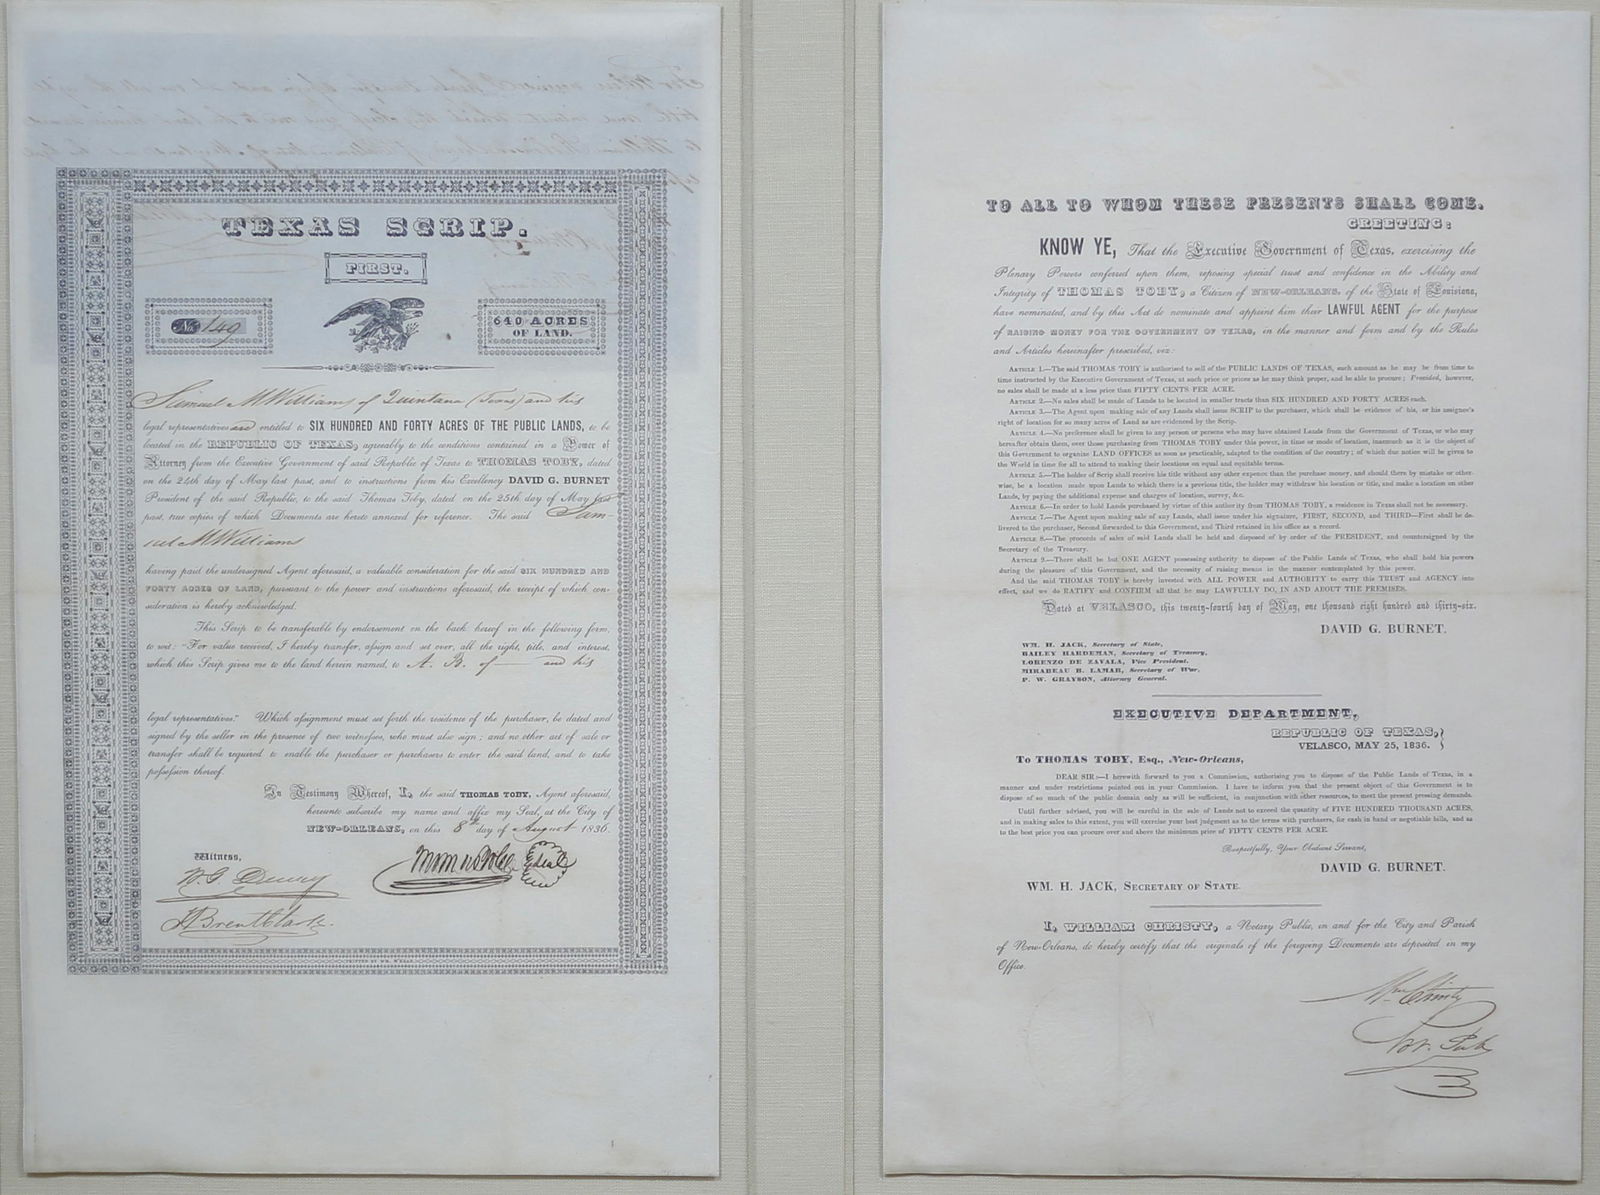 TEXAS SCRIP.
FIRST.
No. 149
640 ACRES
OF LAND.
Samuel M Williams of Quintana (Texas) and his
legal representatives are entitled to SIX HUNDRED AND FORTY ACRES OF THE PUBLIC LANDS, to be
located in the REPUBLIC OF TEXAS, agreeably to the conditions contained in a Power of
Attorney from the Executive Government of said Republic of Texas to THOMAS TOBY, dated
on the 24th day of May last past, and to instructions from his Excellency DAVID G. BURNET
President of the said Republic, to the said Thomas Toby, dated on the 25th day of May last
past, true copies of which Documents are hereto annexed for reference. The said Sam-
uel M Williams
having paid the undersigned Agent aforesaid, a valuable consideration for the said SIX HUNDRED AND
FORTY ACRES OF LAND, pursuant to the power and instructions aforesaid, the receipt of which con-
sideration is hereby acknowledged.
This Scrip to be transferable by endorsement on the back hereof in the following form,
to wit: "For value received, I hereby transfer, assign and set over, all the right, title, and interest,
which this Scrip gives me to the land herein named, to A. B. of — and his
legal representatives." Which assignment must set forth the residence of the purchaser, be dated and
signed by the seller in the presence of two witnesses, who must also sign; and no other act of sale or
transfer shall be required to enable the purchaser or purchasers to enter the said land, and to take
possession thereof.
In Testimony Whereof, I, the said THOMAS TOBY, Agent aforesaid,
hereunto subscribe my name and affix my Seal, at the City of
NEW-ORLEANS, on this 8th day of August 1836.
Witness,
Thomas Toby Seal
TO ALL TO WHOM THESE PRESENTS SHALL COME.
GREETING:
KNOW YE, That the Executive Government of Texas, exercising the
Plenary Powers conferred upon them, reposing special trust and confidence in the Ability and
Integrity of THOMAS TOBY, a Citizen of NEW-ORLEANS, of the State of Louisiana,
have nominated, and by this Act do nominate and appoint him their LAWFUL AGENT for the purpose
of RAISING MONEY FOR THE GOVERNMENT OF TEXAS, in the manner and form and by the Rules
and Articles hereinafter prescribed, viz:
ARTICLE 1.—The said THOMAS TOBY is authorised to sell of the PUBLIC LANDS OF TEXAS, such amount as he may be from time to
time instructed by the Executive Government of Texas, at such price or prices as he may think proper, and be able to procure; Provided, however,
no sales shall be made at a less price than FIFTY CENTS PER ACRE.
ARTICLE 2.—No sales shall be made of Lands to be located in smaller tracts than SIX HUNDRED AND FORTY ACRES each.
ARTICLE 3.—The Agent upon making sale of any Lands shall issue SCRIP to the purchaser, which shall be evidence of his, or his assignee's
right of location for so many acres of Land as are evidenced by the Scrip.
ARTICLE 4.—No preference shall be given to any person or persons who may have obtained Lands from the Government of Texas, or who may
hereafter obtain them, over those purchasing from THOMAS TOBY under this power, in time or mode of location, inasmuch as it is the object of
this Government to organize LAND OFFICES as soon as practicable, adapted to the condition of the country; of which due notice will be given to
the World in time for all to attend to making their locations on equal and equitable terms.
ARTICLE 5.—The holder of Scrip shall receive his title without any other expense than the purchase money, and should there by mistake or other-
wise, be a location made upon Lands to which there is a previous title, the holder may withdraw his location or title, and make a location on other
Lands, by paying the additional expense and charges of location, survey, &c.
ARTICLE 6.—In order to hold Lands purchased by virtue of this authority from THOMAS TOBY, a residence in Texas shall not be necessary.
ARTICLE 7.—The Agent upon making sale of any Lands, shall issue under his signature, FIRST, SECOND, and THIRD—First shall be de-
livered to the purchaser, Second forwarded to this Government, and Third retained in his office as a record.
ARTICLE 8.—The proceeds of sales of said Lands shall be held and disposed of by order of the PRESIDENT, and countersigned by the
Secretary of the Treasury.
ARTICLE 9.—There shall be but ONE AGENT possessing authority to dispose of the Public Lands of Texas, who shall hold his powers
during the pleasure of this Government, and the necessity of raising means in the manner contemplated by this power.
And the said THOMAS TOBY is hereby invested with ALL POWER and AUTHORITY to carry this TRUST and AGENCY into
effect, and we do RATIFY and CONFIRM all that he may LAWFULLY DO, IN AND ABOUT THE PREMISES.
Dated at VELASCO, this twenty-fourth day of May, one thousand eight hundred and thirty-six.
DAVID G. BURNET.
WM. H. JACK, Secretary of State,
BAILEY HARDEMAN, Secretary of Treasury,
LORENZO DE ZAVALA, Vice President.
MIRABEAU B. LAMAR, Secretary of War,
P. W. GRAYSON, Attorney General.
EXECUTIVE DEPARTMENT,
REPUBLIC OF TEXAS,
VELASCO, MAY 25, 1836.
To THOMAS TOBY, Esq., New-Orleans,
DEAR SIR:—I herewith forward to you a Commission, authorising you to dispose of the Public Lands of Texas, in a
manner and under restrictions pointed out in your Commission. I have to inform you that the present object of this Government is to
dispose of so much of the public domain only as will be sufficient, in conjunction with other resources, to meet the present pressing demands.
Until further advised, you will be careful in the sale of Lands not to exceed the quantity of FIVE HUNDRED THOUSAND ACRES,
and in making sales to this extent, you will exercise your best judgment as to the terms with purchasers, for cash in hand or negotiable bills, and as
to the best price you can procure over and above the minimum price of FIFTY CENTS PER ACRE.
Respectfully, Your Obedient Servant,
DAVID G. BURNET.
WM. H. JACK, SECRETARY OF STATE.
I, WILLIAM CHRISTY, a Notary Public, in and for the City and Parish
of New-Orleans, do hereby certify that the originals of the foregoing Documents are deposited in my
Office.
Wm Christy
Not. Pub